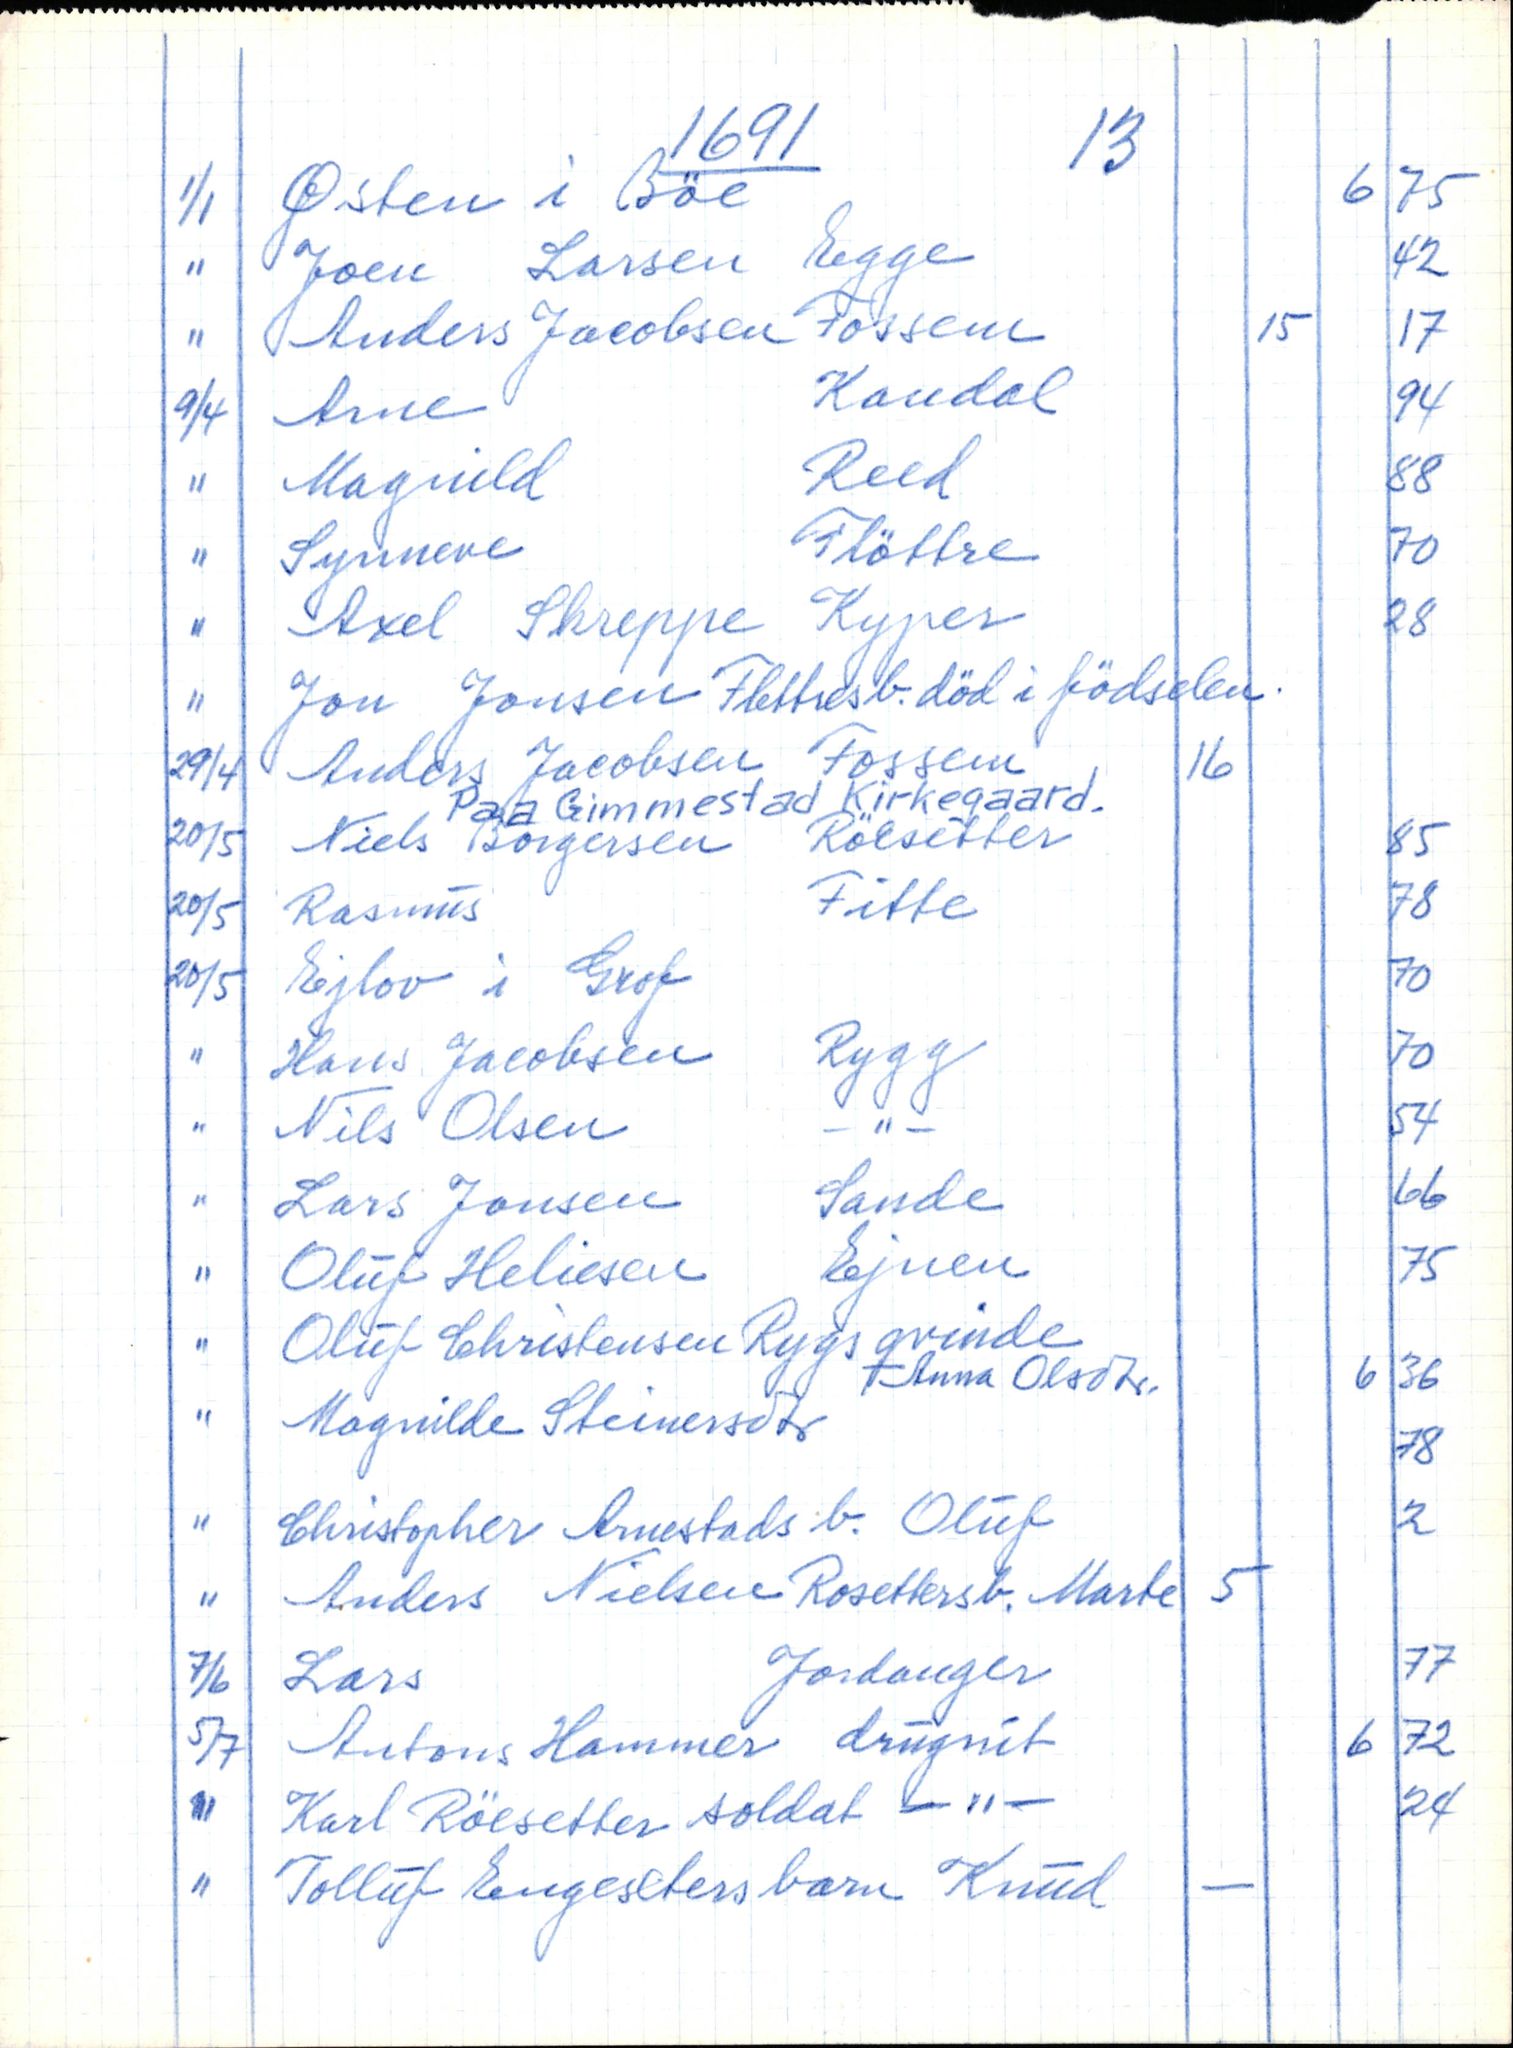 1691 13
1/1 Østen i Böe 6 75
" Joen Larsen Egge 42
" Anders Jacobsen Fossem 15 17
9/4 Arne Kandal 94
" Magnild Reed 88
" Synneve Flöttre 70
" Axel Skreppe Kyper 28
" Jon Jonsen Flettresb. död i födselen.
29/4 Anders Jacobsen Fossem 16
Paa Gimmestad Kirkegaard.
20/5 Niels Borgersen Röesetter 85
20/5 Rasmus Fitte 78
20/5 Ejlov i Grof 70
" Hans Jacobsen Rygg 70
" Nils Olsen — " — 54
" Lars Jonsen Sande 66
" Oluf Heliesen Ejnen 75
" Oluf Christensen Rygs qvinde
+ Anna Olsdtr. 6 36
" Magnilde Steinersdtr 78
" Christopher Arnestads b. Oluf 2
" Anders Nielsen Rosettersb. Marte 5
7/6 Lars Jordanger 77
5/7 Antons Hammer drugnit 6 72
" Karl Röesetter soldat — " — 24
" Tolluf Engesetters barn Knud —